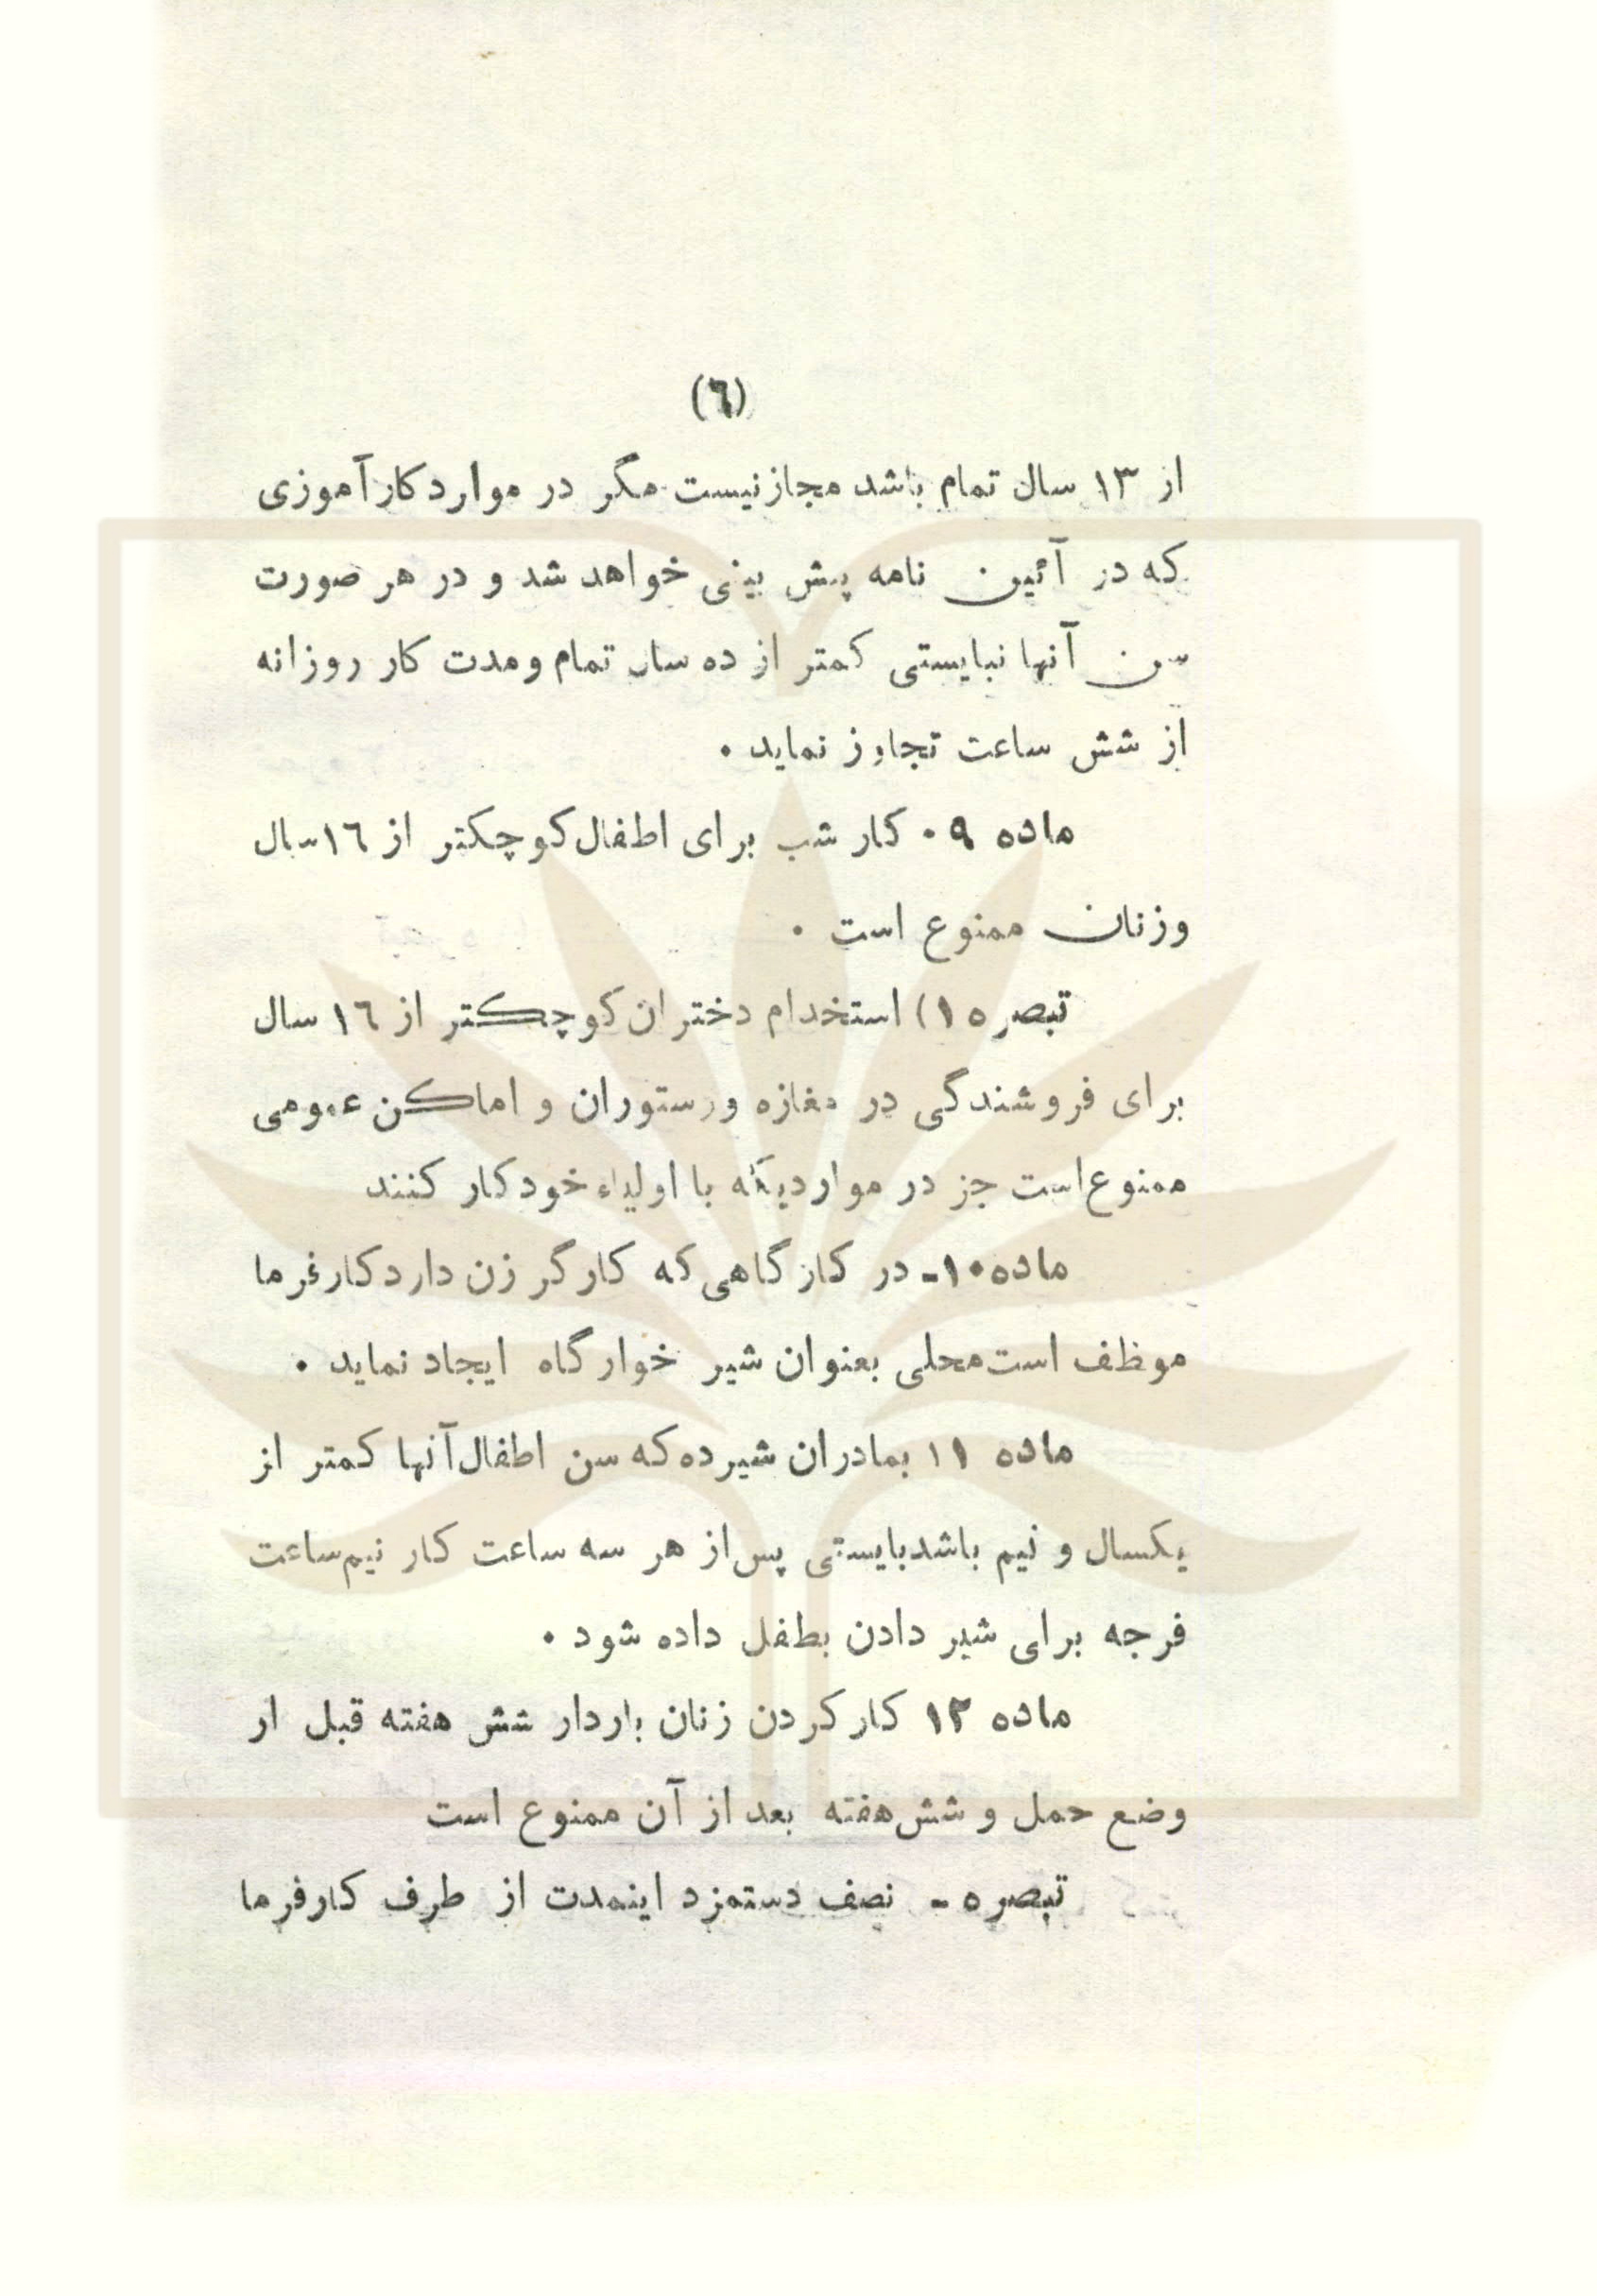 (٦)
از ۱۳ سال تمام باشد مجازنیست مگر در موارد کارآموزی
که در آئین نامه پیش بینی خواهد شد و در هر صورت
سن آنها نبایستی کمتر از ده سال تمام ومدت کار روزانه
از شش ساعت تجاوز نماید .
ماده ۹ . کار شب برای اطفال کوچکتر از ۱٦ سال
وزنان ممنوع است .
تبصره ۱) استخدام دختران کوچکتر از ۱٦ سال
برای فروشندگی در مغازه ورستوران و اماکن عمومی
ممنوع است جز در مواردیکه با اولیاء خود کار کنند
ماده ۱۰- در کارگاهی که کارگر زن دارد کارفرما
موظف است محلی بعنوان شیر خوارگاه ایجاد نماید .
ماده ۱۱ بمادران شیرده که سن اطفال آنها کمتر از
یکسال و نیم باشد بایستی پس از هر سه ساعت کار نیم ساعت
فرجه برای شیر دادن بطفل داده شود .
ماده ۱۲ کار کردن زنان باردار شش هفته قبل از
وضع حمل و شش هفته بعد از آن ممنوع است
تبصره - نصف دستمزد اینمدت از طرف کارفرما